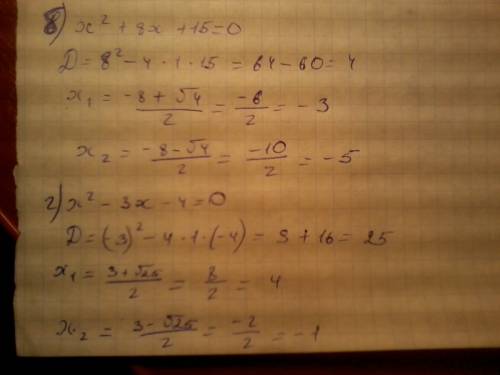 в) x² + 8x + 15 = 0
D = 8² - 4 · 1 · 15 = 64 - 60 = 4
x₁ = (-8 + √4)/2 = -6/2 = -3
x₂ = (-8 - √4)/2 = -10/2 = -5
г) x² - 3x - 4 = 0
D = (-3)² - 4 · 1 · (-4) = 9 + 16 = 25
x₁ = (3 + √25)/2 = 8/2 = 4
x₂ = (3 - √25)/2 = -2/2 = -1